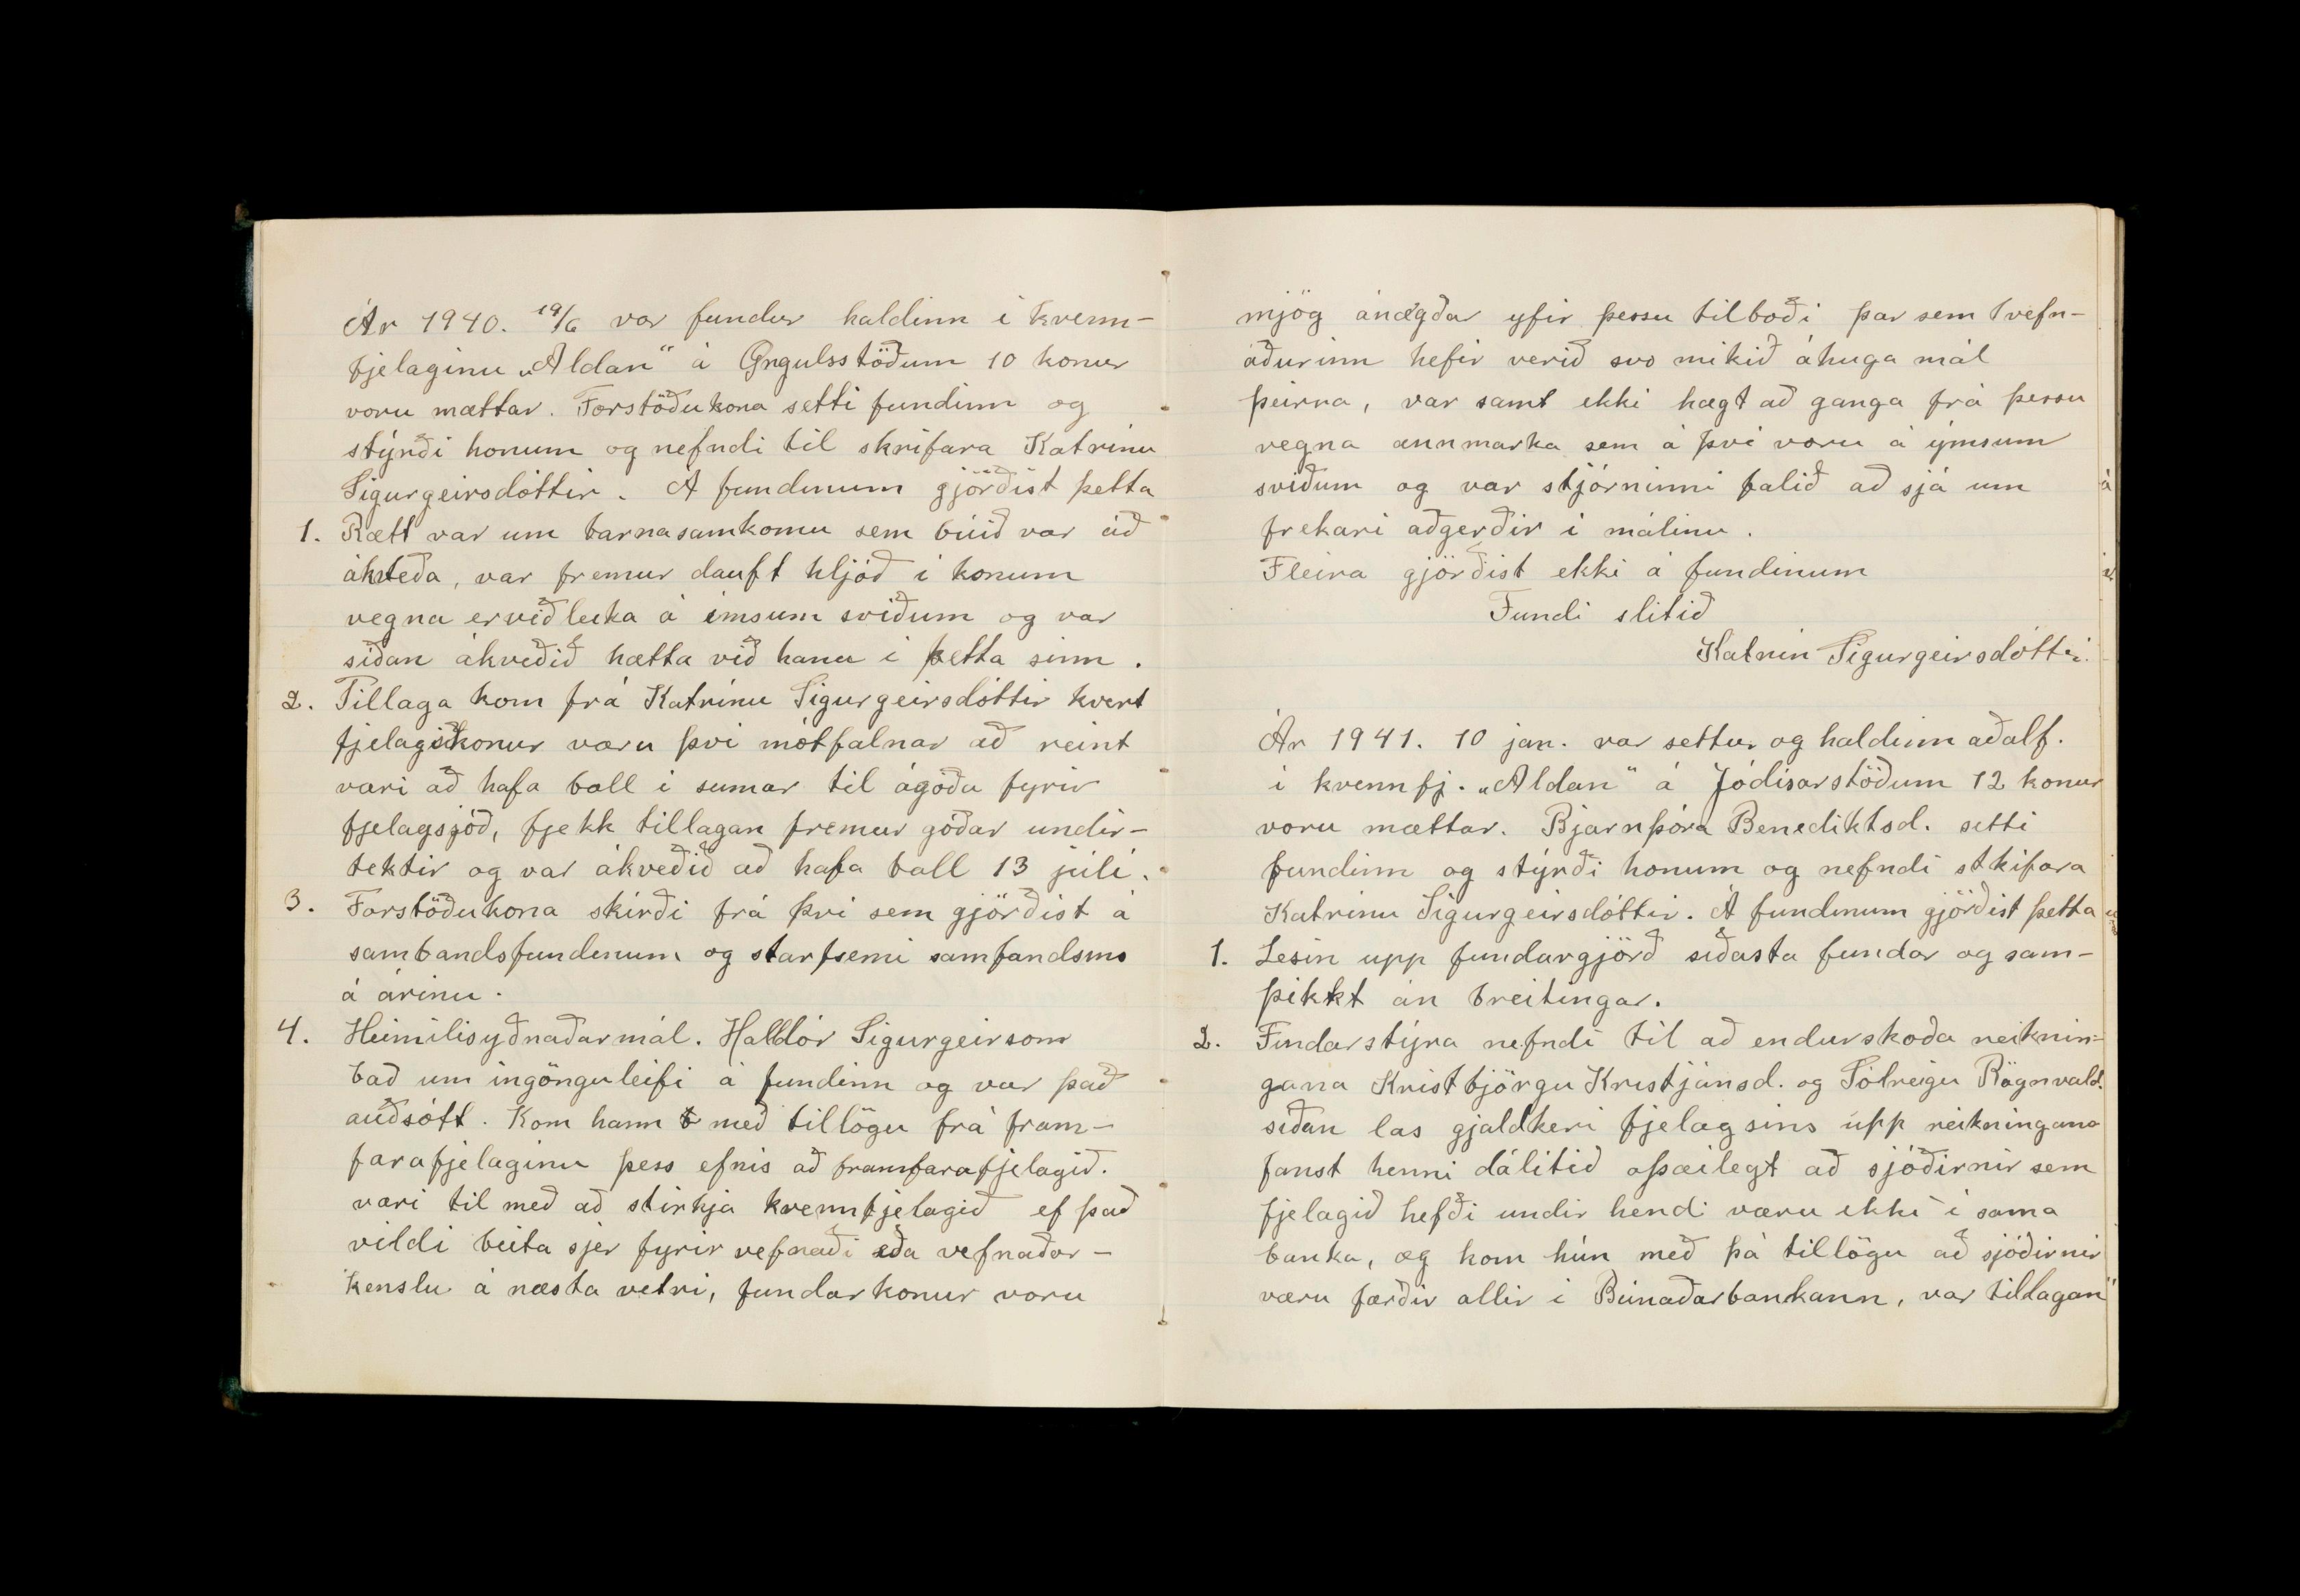 Ár 1940. 19/6 var fundur haldinn í kvenn-
fjelaginu „Aldan" á Öngulsstöðum 10 konur
voru mættar. Forstöðukona setti fundinn og
stýrði honum og nefndi til skrifara Katrínu
Sigurgeirsdóttir. Á fundinum gjörðist þetta
1. Rætt var um barnasamkomu sem búið var að
ákveða, var fremur dauft hljóð í konum
vegna erviðleika á ímsum sviðum og var
síðan ákveðið hætta við hana í þetta sinn.
2. Tillaga kom frá Katrínu Sigurgeirsdóttir hvert
fjelagskonur væru því mótfalnar að reint
væri að hafa ball í sumar til ágóða fyrir
fjelagsjóð, fjekk tillagan fremur góðar undir-
tektir og var ákveðið að hafa ball 13 júlí.
3. Forstöðukona skírði frá því sem gjörðist á
sambandsfundinum og starfsemi samfandsins
á árinu.
4. Heimilisyðnaðarmál. Halldór Sigurgeirsson
bað um ingönguleifi á fundinn og var það
auðsótt. Kom hann með tillögu frá fram-
farafjelaginu þess efnis að framfarafjelagið.
væri til með að stirkja kvennfjelagið ef það
vildi beita sjer fyrir vefnaði eða vefnaðar-
kenslu á næsta vetri, fundarkonur voru
mjög ánægðar yfir þessu tilboði þar sem vefn-
aðurinn hefir verið svo mikið áhuga mál
þeirra, var samt ekki hægt að ganga frá þessu
vegna annmarka sem á því voru á ýmsum
sviðum og var stjórninni falið að sjá um
frekari aðgerðir í málinu.
Fleira gjörðist ekki á fundinum
Fundi slitið
Katrín Sigurgeirsdóttir.
Ár 1941. 10 jan. var settur og haldinn aðalf.
í kvennfj. „Aldan" á Jódísarstöðum 12 konur
voru mættar. Bjarnþóra Benediktsd. setti
fundinn og stýrði honum og nefndi stkifara
Katrínu Sigurgeirsdóttir. Á fundinum gjörðist þetta
1. Lesin upp fundargjörð síðasta fundar og sam-
þikkt án breitingar.
2. Fundarstýra nefndi til að endurskoða reiknin-
gana Kristbjörgu Kristjánsd. og Sólveigu Rögnvald.
síðan las gjaldkeri fjelagsins upp reikningana
fanst henni dálítið óþæilegt að sjóðirnir sem
fjelagið hefði undir hendi væru ekki í sama
banka, og kom hún með þá tillögu að sjóðirnir
væru færðir allir í Búnaðarbankann, var tillagan